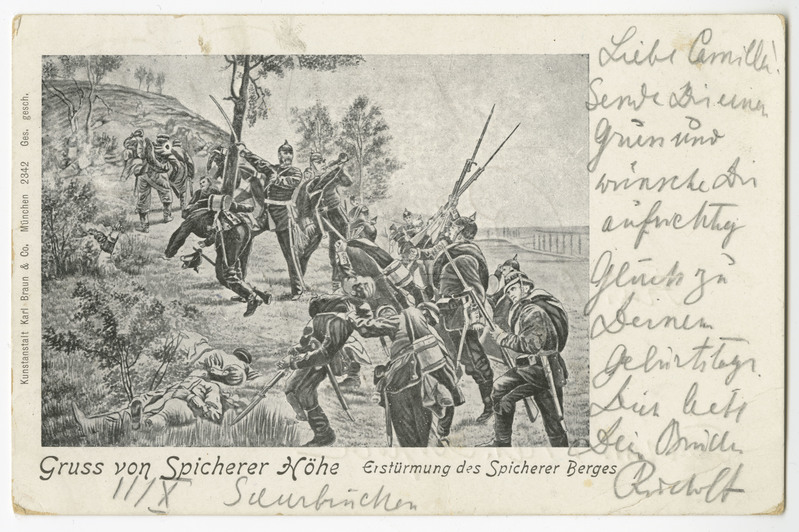 Kunstanstalt Karl Braun & Co, München 2342 Ges. gesch.
Gruss von Spicherer Höhe Erstürmung des Spicherer Berges
11/X Saarbrücken
Liebe Camilla!
Sende Dir einen
Gruss und
wünsche Dir
aufrichtig
Glück zu
Deinem
Geburtstage
Dein Bruder
Rudolf